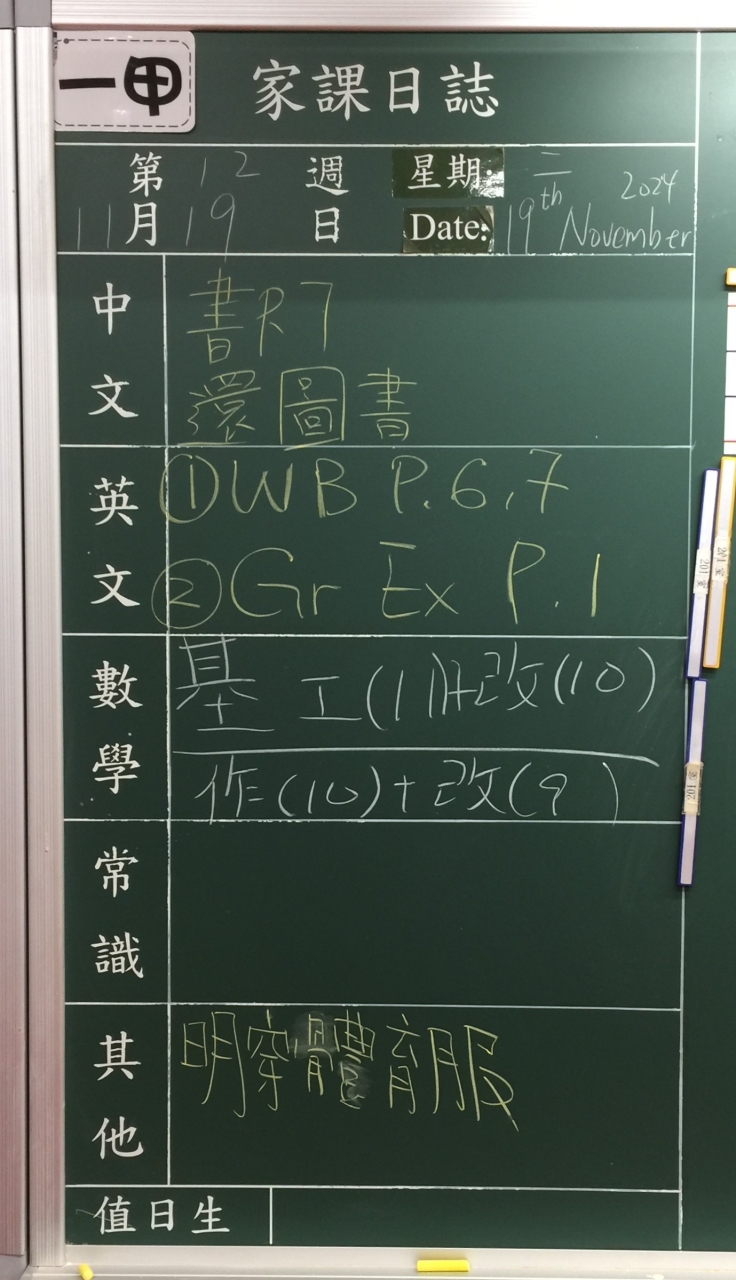 一甲
家課日誌
第 12 週 星期: 二
11月 19 日 Date: 19th November 2024
中文
書P.7
還圖書
英文
①WB P.6,7
②Gr Ex P.1
數學
基 工(11)+改(10)
作(10)+改(9)
常識
其他
明穿體育服
值日生
201室
201室
201室